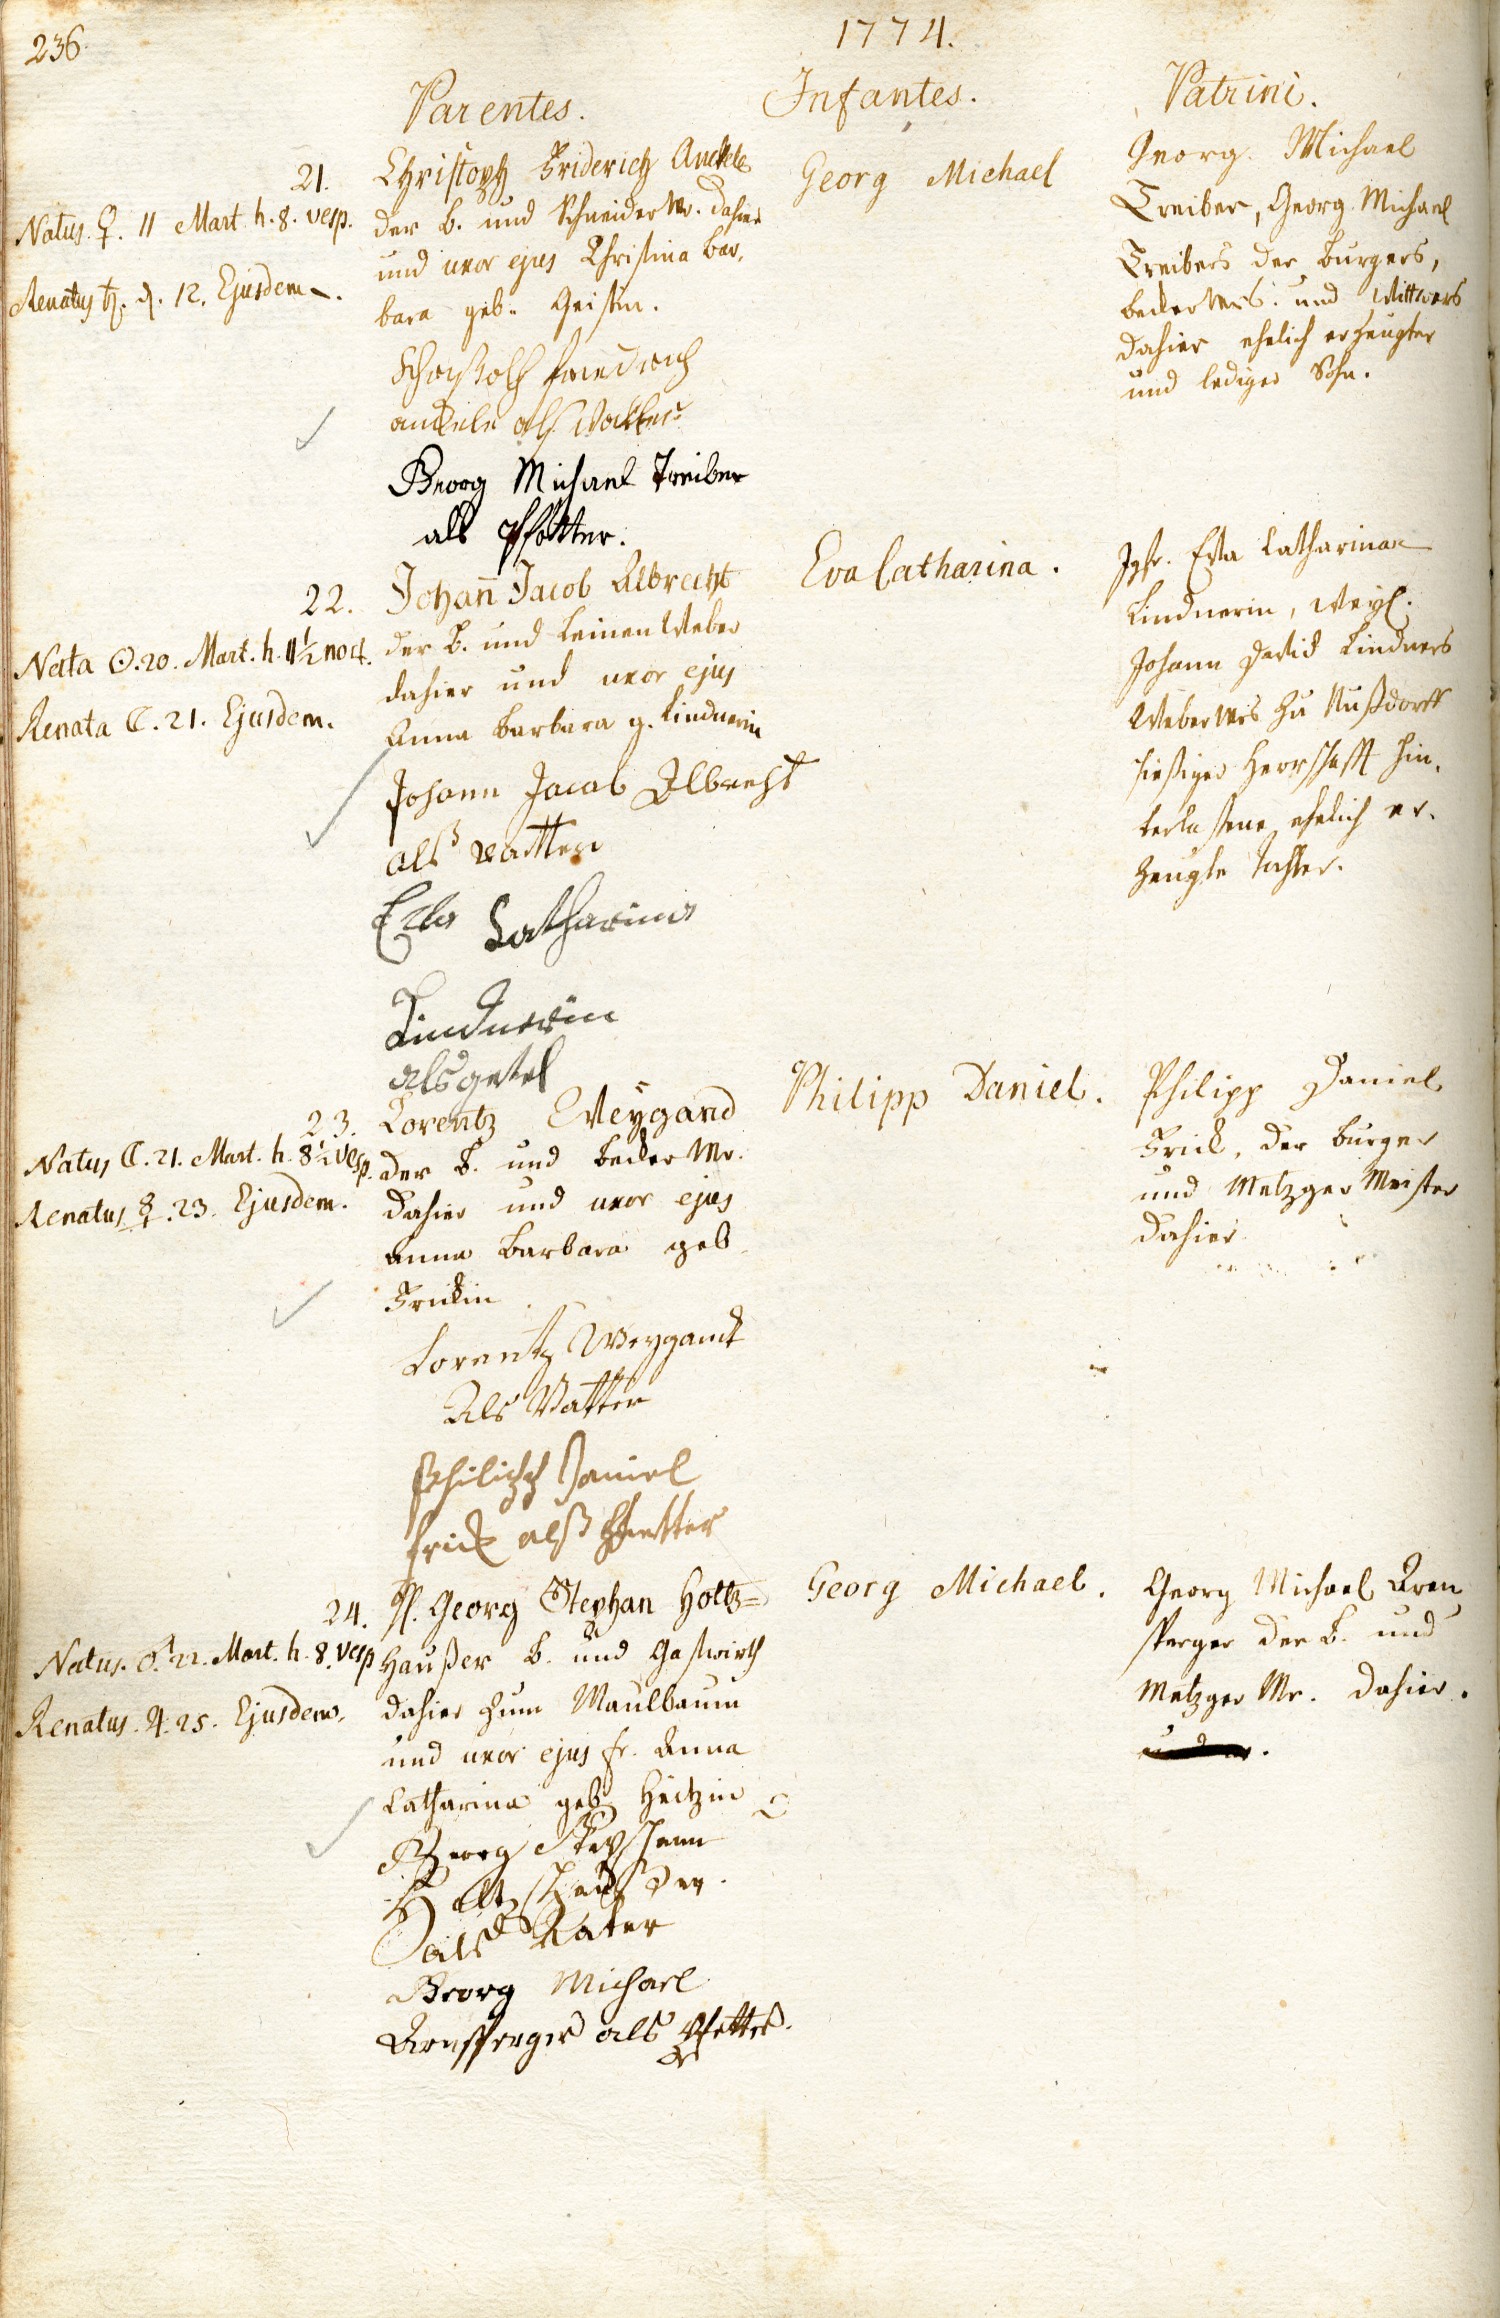 236
1774.
Parentes.
Infantes.
Patrini.
21.
Natus. ♀. 11 Mart. h. 8. vesp.
Renatus ♄. d. 12. Ejusdem.
Christoph Friderich Anckele
der b. und Schneider Mr. dahier
und uxor ejus Christina Bar,
bara geb. Geistin.
Friedrich
anckele als
Georg Michael Treiber
als Pfetter.
Georg Michael
Georg Michael
Treiber, Georg Michael
Treibers des burgers,
becker Mrs. und Wittwers
dahier ehelich erzeugter
und lediger Sohn.
22.
Nata ☉. 20. Mart. h. 11½ noct.
Renata ☾. 21. Ejusdem.
Johan̄ Jacob Albrecht
der b. und Leinen Weber
dahier und uxor ejus
Anna Barbara g. Lindnerin
Johann Jacob Albrecht
als vatter
Eva Catharina
Lindnerin
als getel
Eva Catharina.
Jgfr. Eva Catharina
Lindnerin, weyl.
Johann David Lindners
Weber Mrs zu Nußdorff
hiesiger Herrschafft hin,
terlaßene ehelich er,
zeugte Tochter.
23.
Natus ☾. 21. Mart. h. 8½ vesp.
Renatus ☿. 23. Ejusdem.
Lorentz Weygand
der b. und becker Mr.
dahier und uxor ejus
Anna Barbara geb.
Frickin
Lorentz Weygandt
Als Vatter
Philipp Daniel
frick alß Pfetter
Philipp Daniel.
Philipp Daniel
Frick, der burger
und Metzger Meister
dahier
24.
Natus. ♂. 22. Mart. h. 8. vesp
Renatus. ♃. 25. Ejusdem.
H. Georg Stephan Holtz=
haußer b. und Gastwirth
dahier zum Maulbaum
und uxor ejus fr. Anna
Catharina geb. Heitzin
Georg Stephann
Holtzhaußer.
als Vater
Georg Michael
Arnsperger als Pfetter.
Georg Michael.
Georg Michael Aren
sperger der b. und
Metzger Mr. dahier.